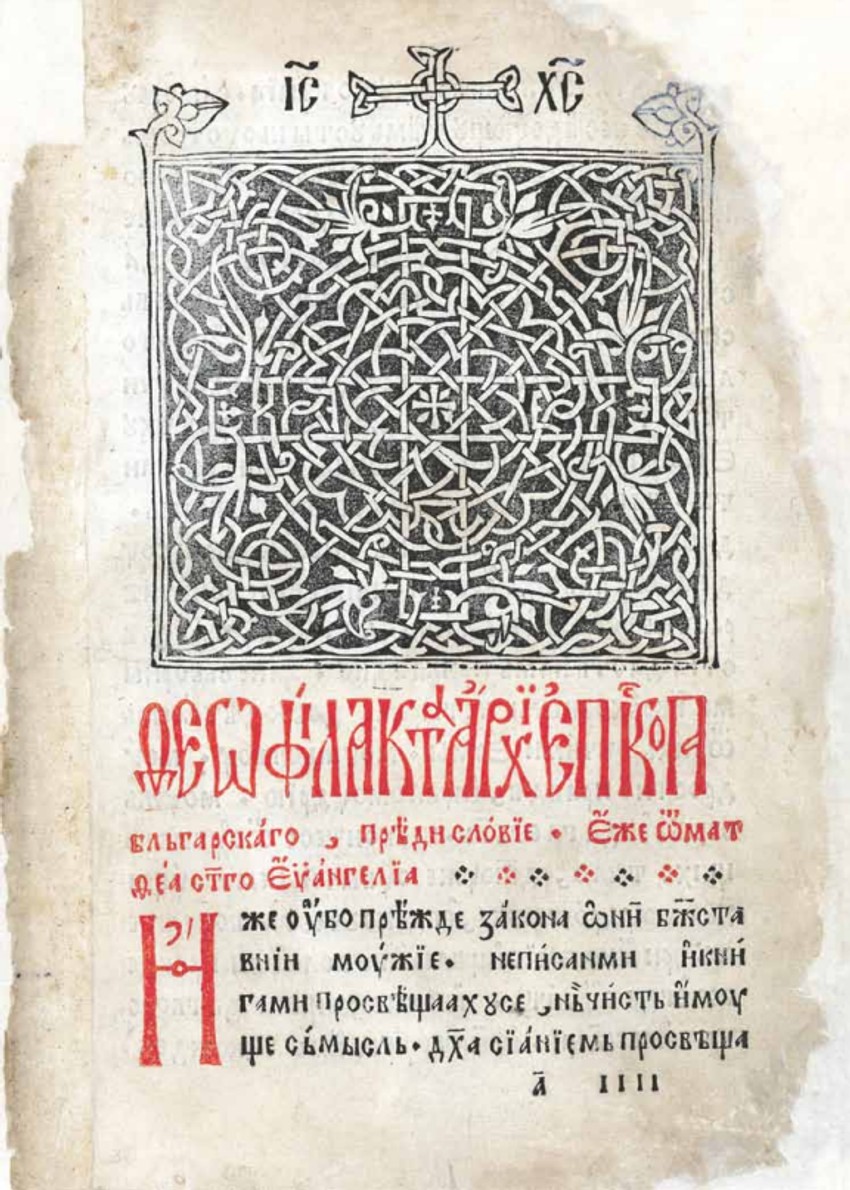 І҃С Х҃С
ѲЕѠФІЛАКТАА́РХЇЕ́ПІ́КОПА
бльгарска́го , прѣдисло́вїе · Е́же ѿмат
ѳе́а ст҃го Е́ѵа́нгелїа
Иже оу҆́бо прѣ́жде за́кона ѡ҆ни бж҃ста
внїи моу́жїе · непи́санми и҆кни́
гами просвѣщаахꙋсе , нь҆чи́сть и҆́моу
ще съ́мысль · дх҃а сїа́нїемь просвѣща
а҃ ІІІІ